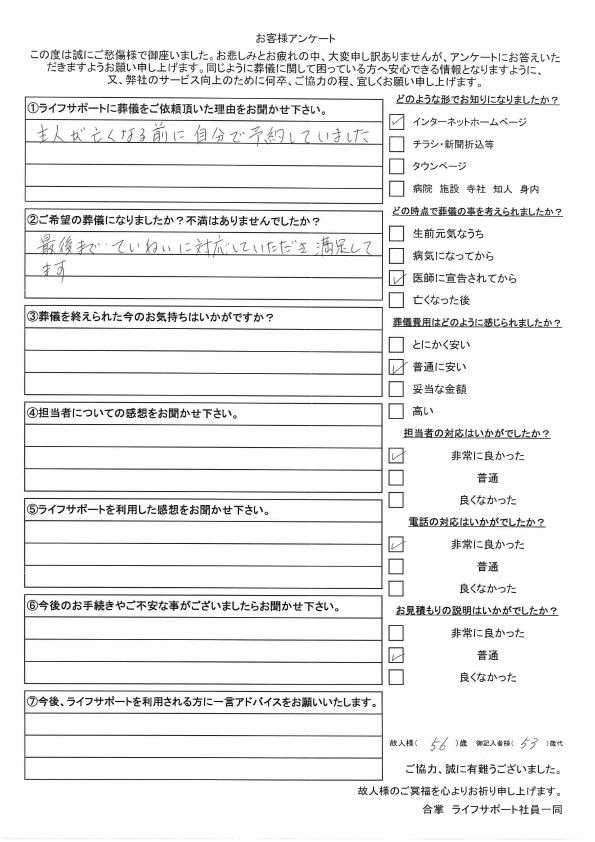 お客様アンケート
この度は誠にご愁傷様で御座いました。お悲しみとお疲れの中、大変申し訳ありませんが、アンケートにお答えいた
だきますようお願い申し上げます。同じように葬儀に関して困っている方へ安心できる情報となりますように、
又、弊社のサービス向上のために何卒、ご協力の程、宜しくお願い申し上げます。
①ライフサポートに葬儀をご依頼頂いた理由をお聞かせ下さい。
主人が亡くなる前に自分で予約していました
②ご希望の葬儀になりましたか？不満はありませんでしたか？
最後まで、ていねいに対応していただき満足して
ます
③葬儀を終えられた今のお気持ちはいかがですか？
④担当者についての感想をお聞かせ下さい。
⑤ライフサポートを利用した感想をお聞かせ下さい。
⑥今後のお手続きやご不安な事がございましたらお聞かせ下さい。
⑦今後、ライフサポートを利用される方に一言アドバイスをお願いいたします。
どのような形でお知りになりましたか？
インターネットホームページ
チラシ・新聞折込等
タウンページ
病院 施設 寺社 知人 身内
どの時点で葬儀の事を考えられましたか？
生前元気なうち
病気になってから
医師に宣告されてから
亡くなった後
葬儀費用はどのように感じられましたか？
とにかく安い
普通に安い
妥当な金額
高い
担当者の対応はいかがでしたか？
非常に良かった
普通
良くなかった
電話の対応はいかがでしたか？
非常に良かった
普通
良くなかった
お見積もりの説明はいかがでしたか？
非常に良かった
普通
良くなかった
故人様（ 56 ）歳 御記入者様（ 53 ）歳代
ご協力、誠に有難うございました。
故人様のご冥福を心よりお祈り申し上げます。
合掌 ライフサポート社員一同